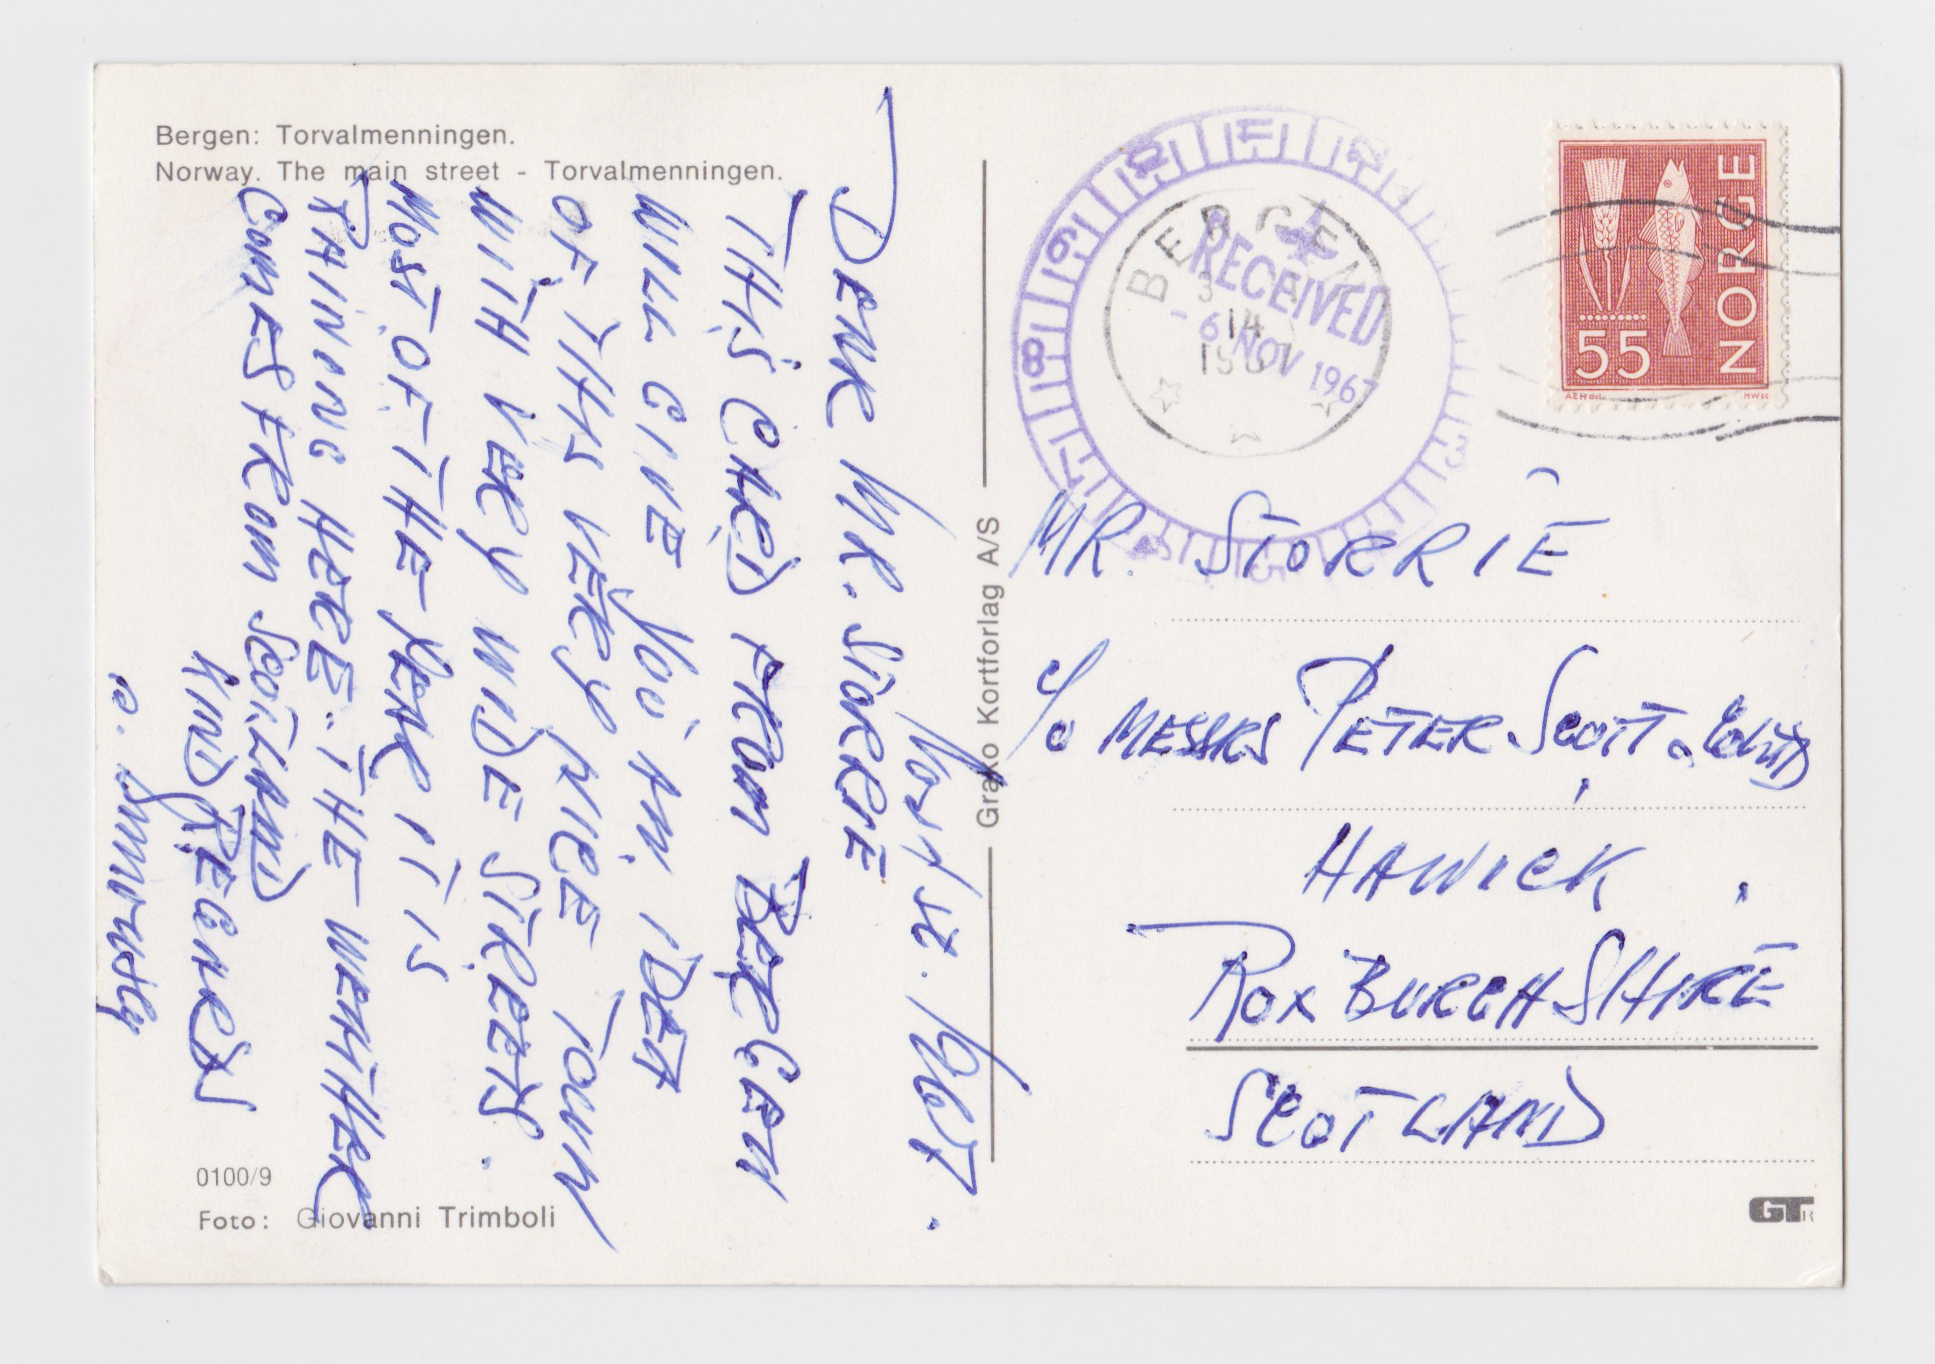 Bergen: Torvalmenningen.
Norway. The main street - Torvalmenningen.
Nov 1st. 1967.
DEAR MR. STORRIE
THIS CARD FROM BERGEN
WILL GIVE YOU AN IDEA
OF THIS VERY NICE TOWN
WITH VERY WIDE STREETS.
MOST OF THE YEAR IT IS
RAINING HERE. THE WEATHER
COMES FROM SCOTLAND
KIND REGARDS
0100/9
Foto: Giovanni Trimboli
Grako Kortforlag A/S
BERGEN
3
14
1967
RECEIVED
- 6 NOV 1967
NORGE
55
MR. STORRIE
C/o MESSRS PETER SCOTT & Co Ltd
HAWICK.
ROXBURGHSHIRE
SCOTLAND
GTR